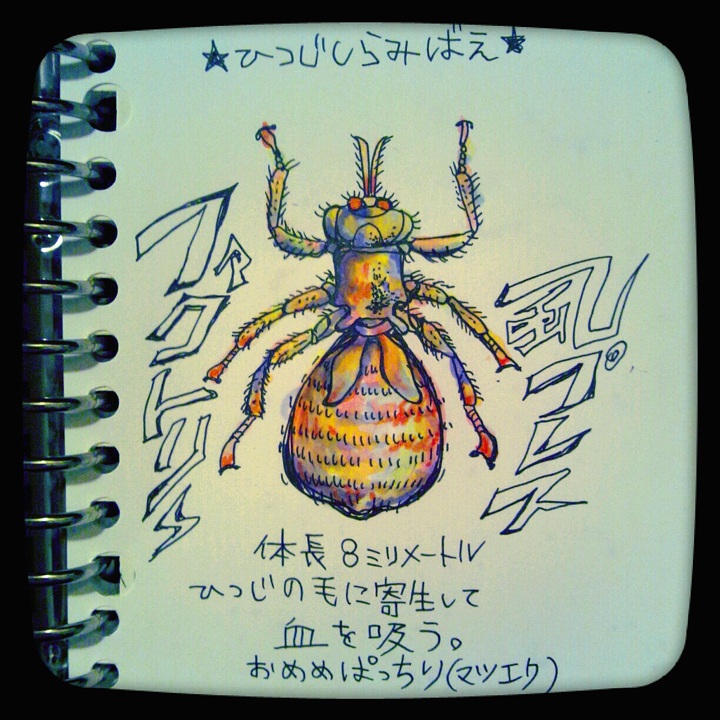 ★ひつじしらみばえ★
ファクトリー
虱プレス
体長8ミリメートル
ひつじの毛に寄生して
血を吸う。
おめめぱっちり(マツエク)